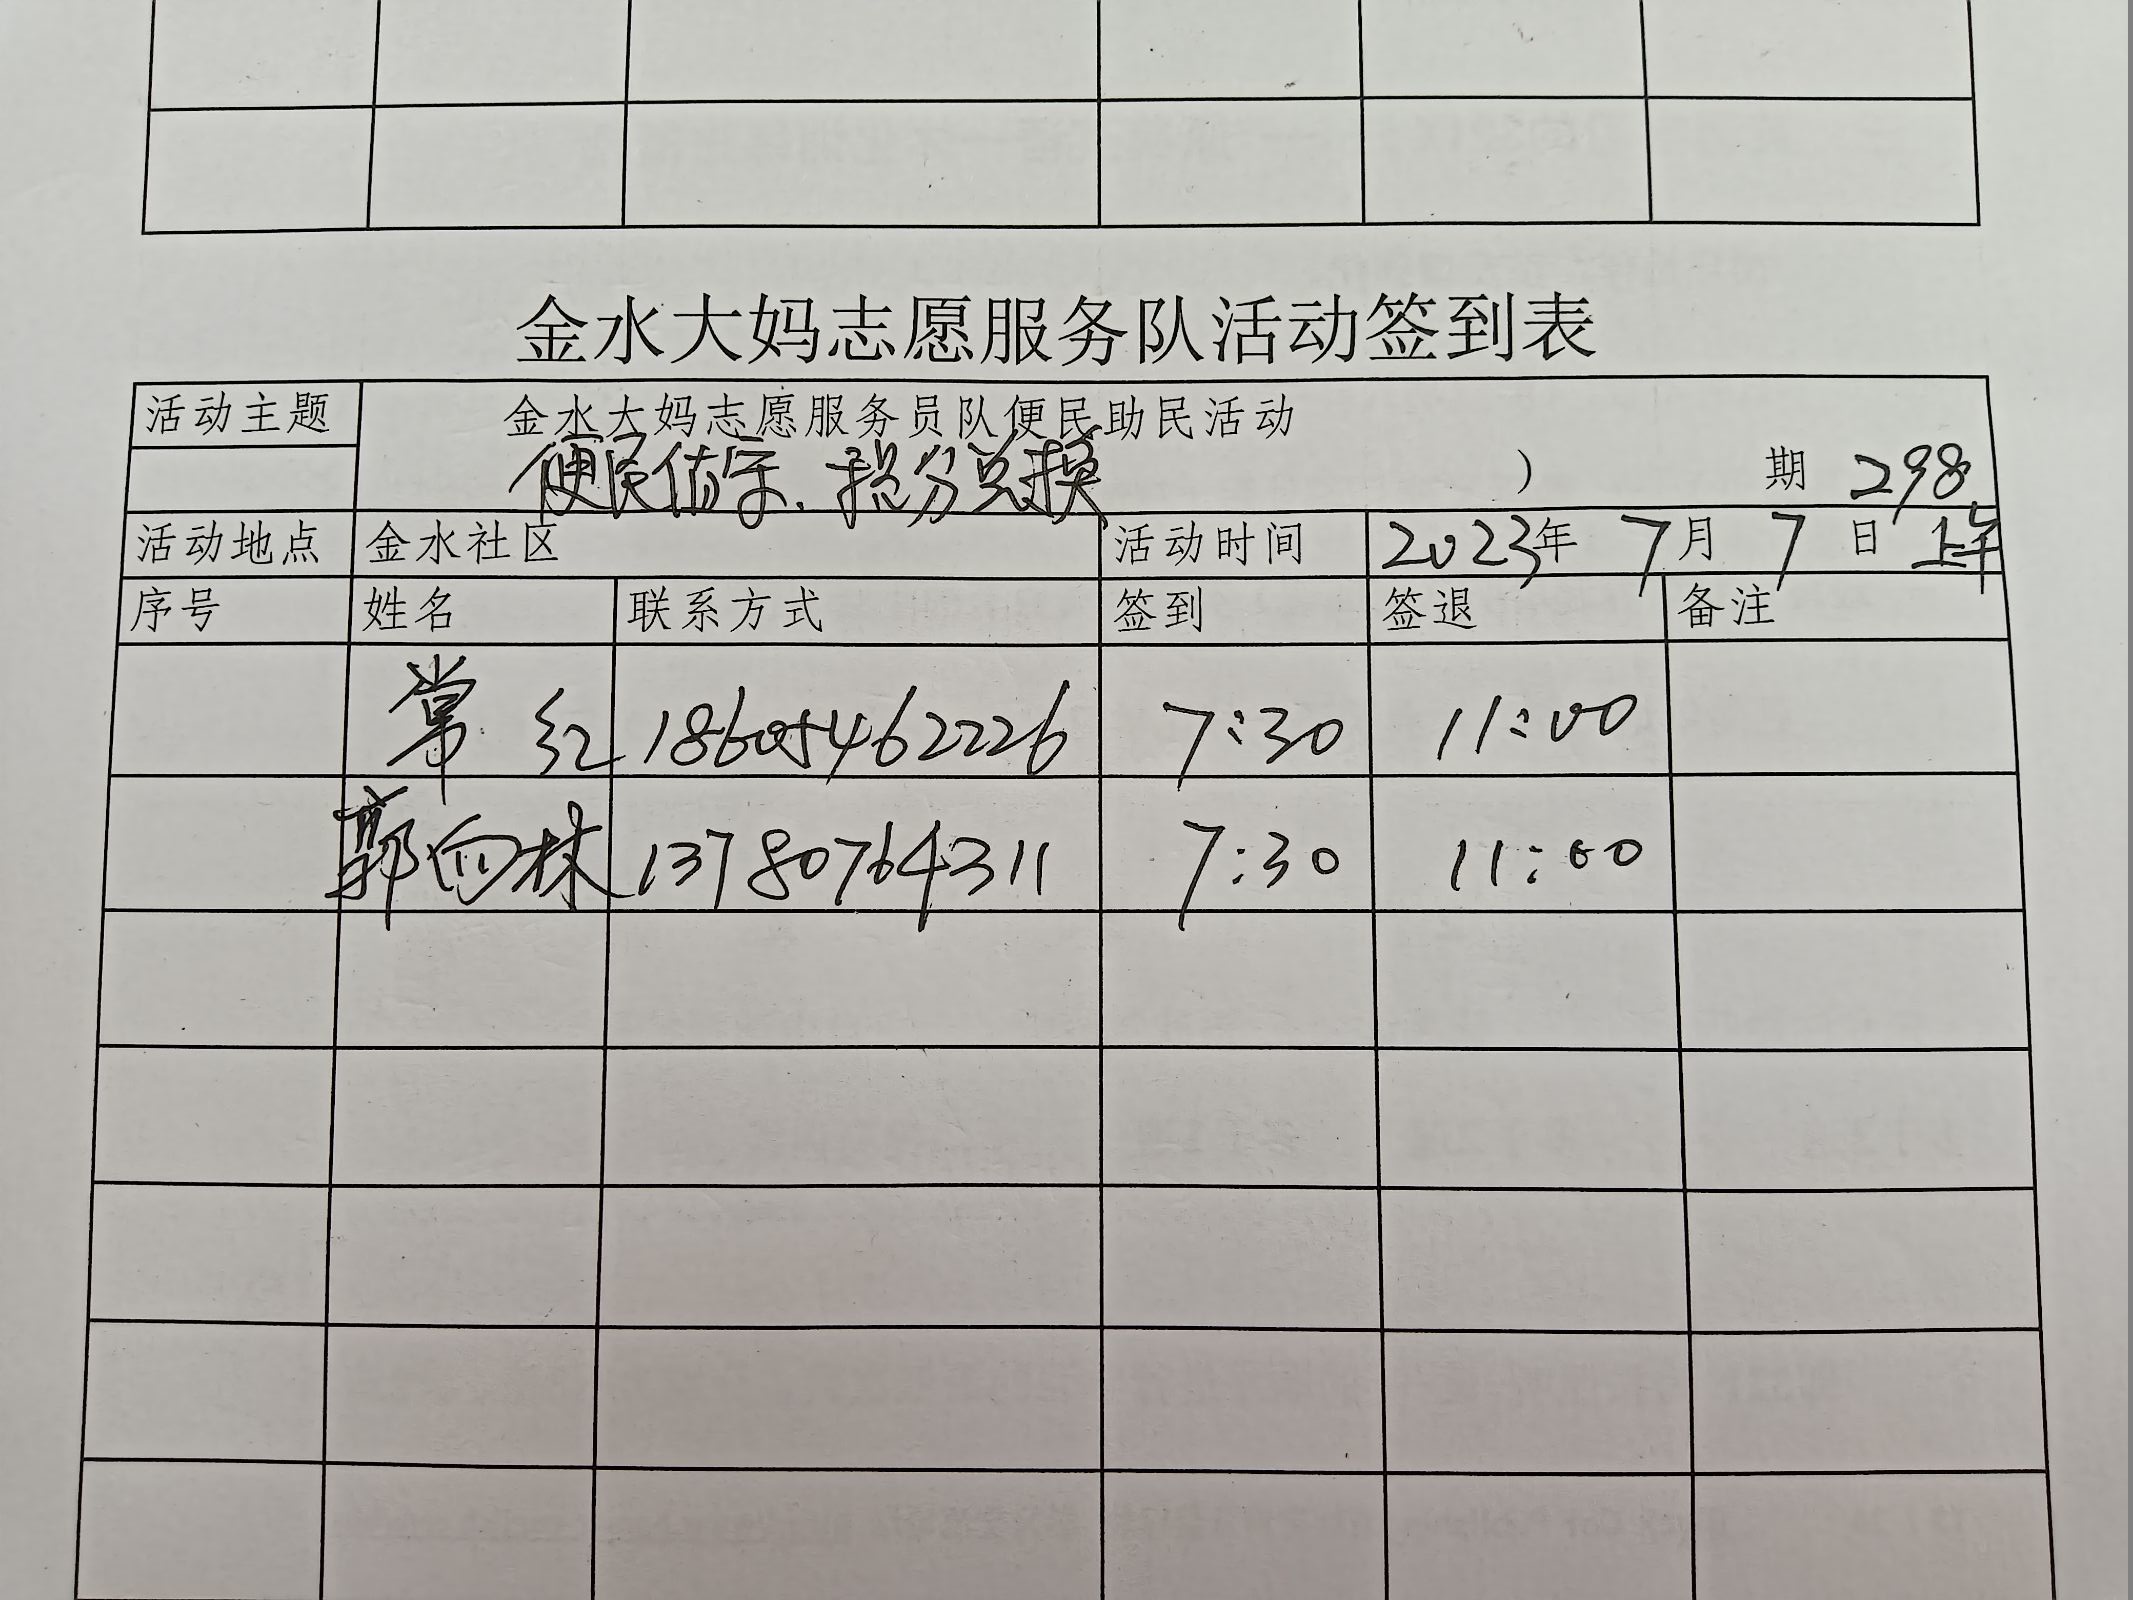 金水大妈志愿服务队活动签到表
活动主题 金水大妈志愿服务员队便民助民活动
便民值守、积分兑换 ) 期 298
活动地点 金水社区 活动时间 2023年 7月 7日 上午
序号 姓名 联系方式 签到 签退 备注
常红 18605462226 7:30 11:00
郭向林 13780764311 7:30 11:00